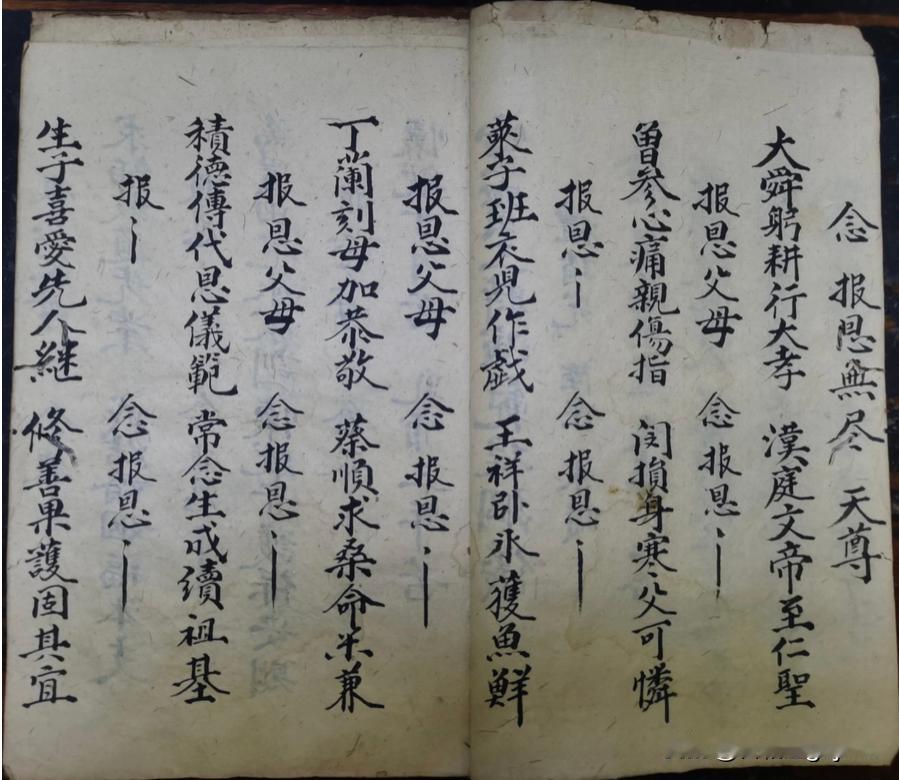 念 报恩無尽 天尊
大舜躬耕行大孝 漢庭文帝至仁聖
报恩父母 念报恩
曽参心痛親傷指 闵損身寒父可憐
报恩 念报恩
萊子班衣児作戯 王祥卧氷獲魚鮮
报恩父母 念报恩
丁蘭刻母加恭敬 蔡順求桑命米兼
报恩父母 念报恩
積德傳代恩儀範 常念生成續祖基
报 念报恩
生子喜愛先人継 修善果護固其宜